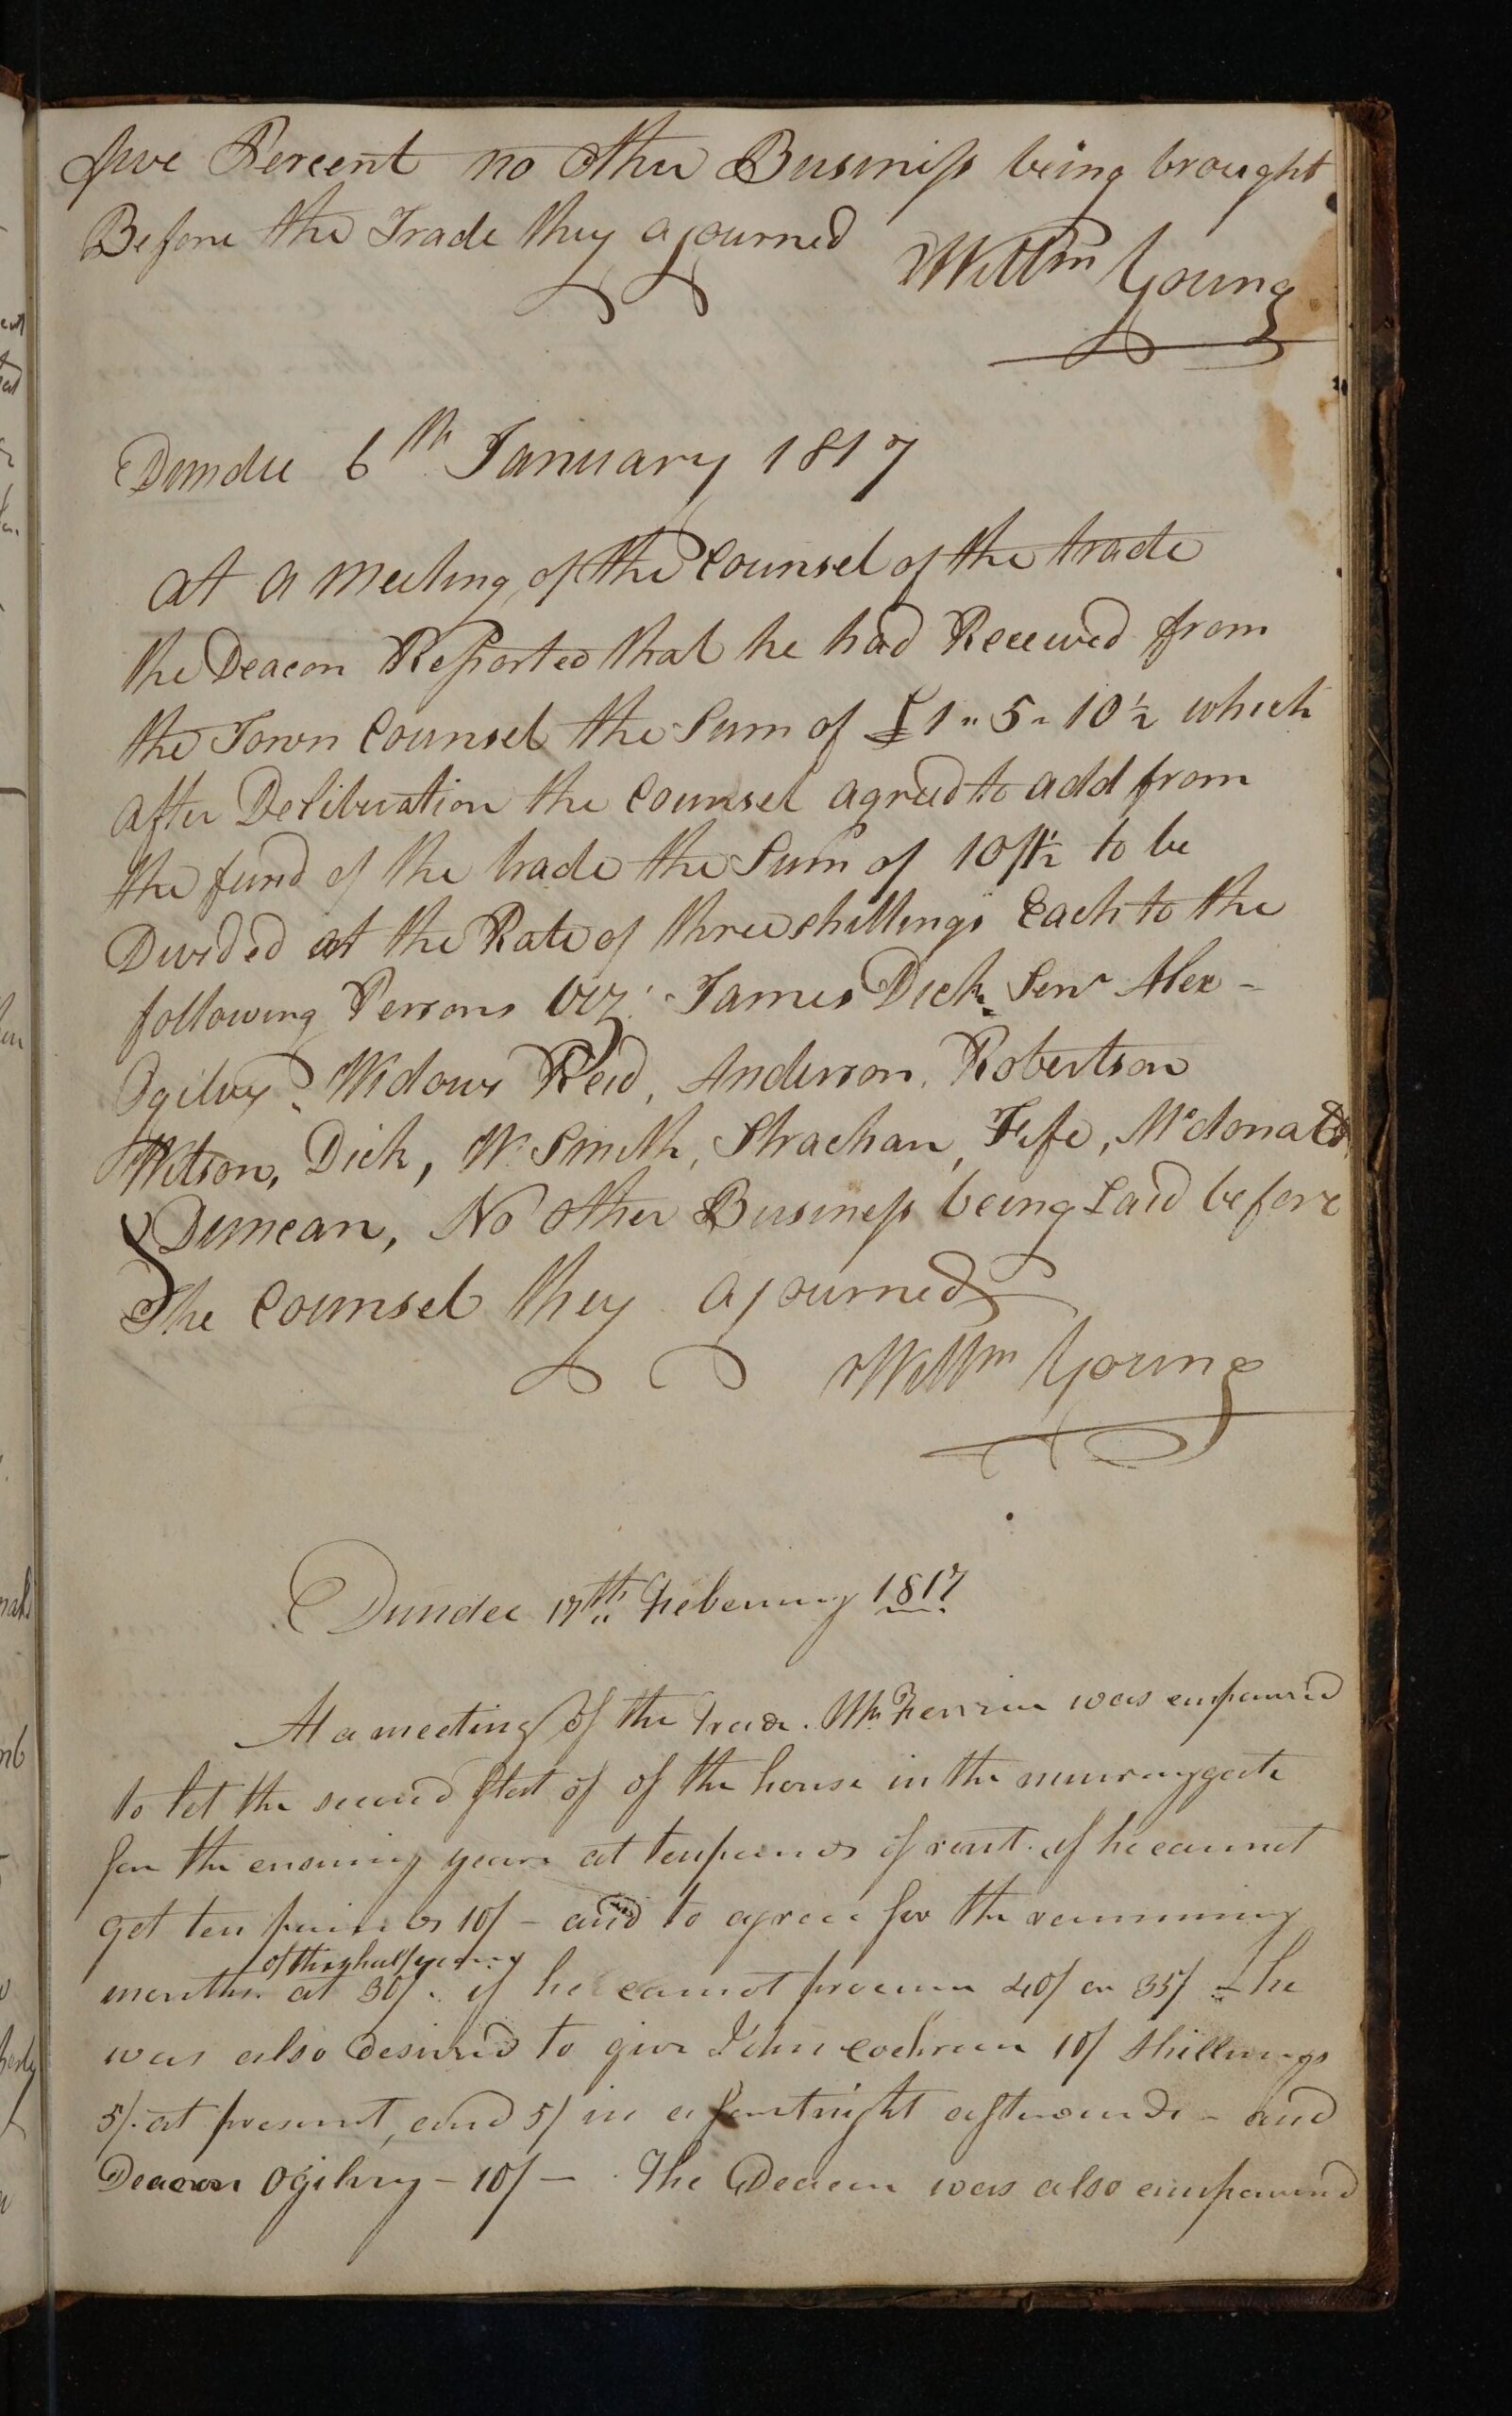 five Percent no other Business being brought
Before the Trade they ajourned Willm Young
Dundee 6th January 1817
At a Meeting of the Counsel of the trade
the Deacon Reported that he had Received from
the Town Counsel the Sum of £1 " 5 " 10½ which
after Deliberation the Counsel agreed to add from
the fund of the trade the Sum of 10/1½ to be
Divided at the Rate of three shillings Each to the
following Persons viz: James Dick Senr Alex-
Ogilvy, Widows Reid, Anderson, Robertson
Wilson, Dick, W. Smith, Strachan, Fife, Mcdonald
& Duncan, No other Business being Laid before
The Counsel they ajourned
Willm Young
Dundee 17th Feberuary 1817
At a meeting of the Trade. Wm Ferrier was empowred
to let the second flat of of the house in the murraygate
for the ensuing year at ten pounds of rent. if he cannot
get ten pounds 10/ - and to agree for the remmining
of this half year
months at 30/. if he cannot procure 40/ or 35/ - he
was also desired to give John Cochran 10/ Shillings
5/. at present, and 5/ in a fortnight afterwards - and
Deacon Ogilvy - 10/ - The Deacon was also empowered